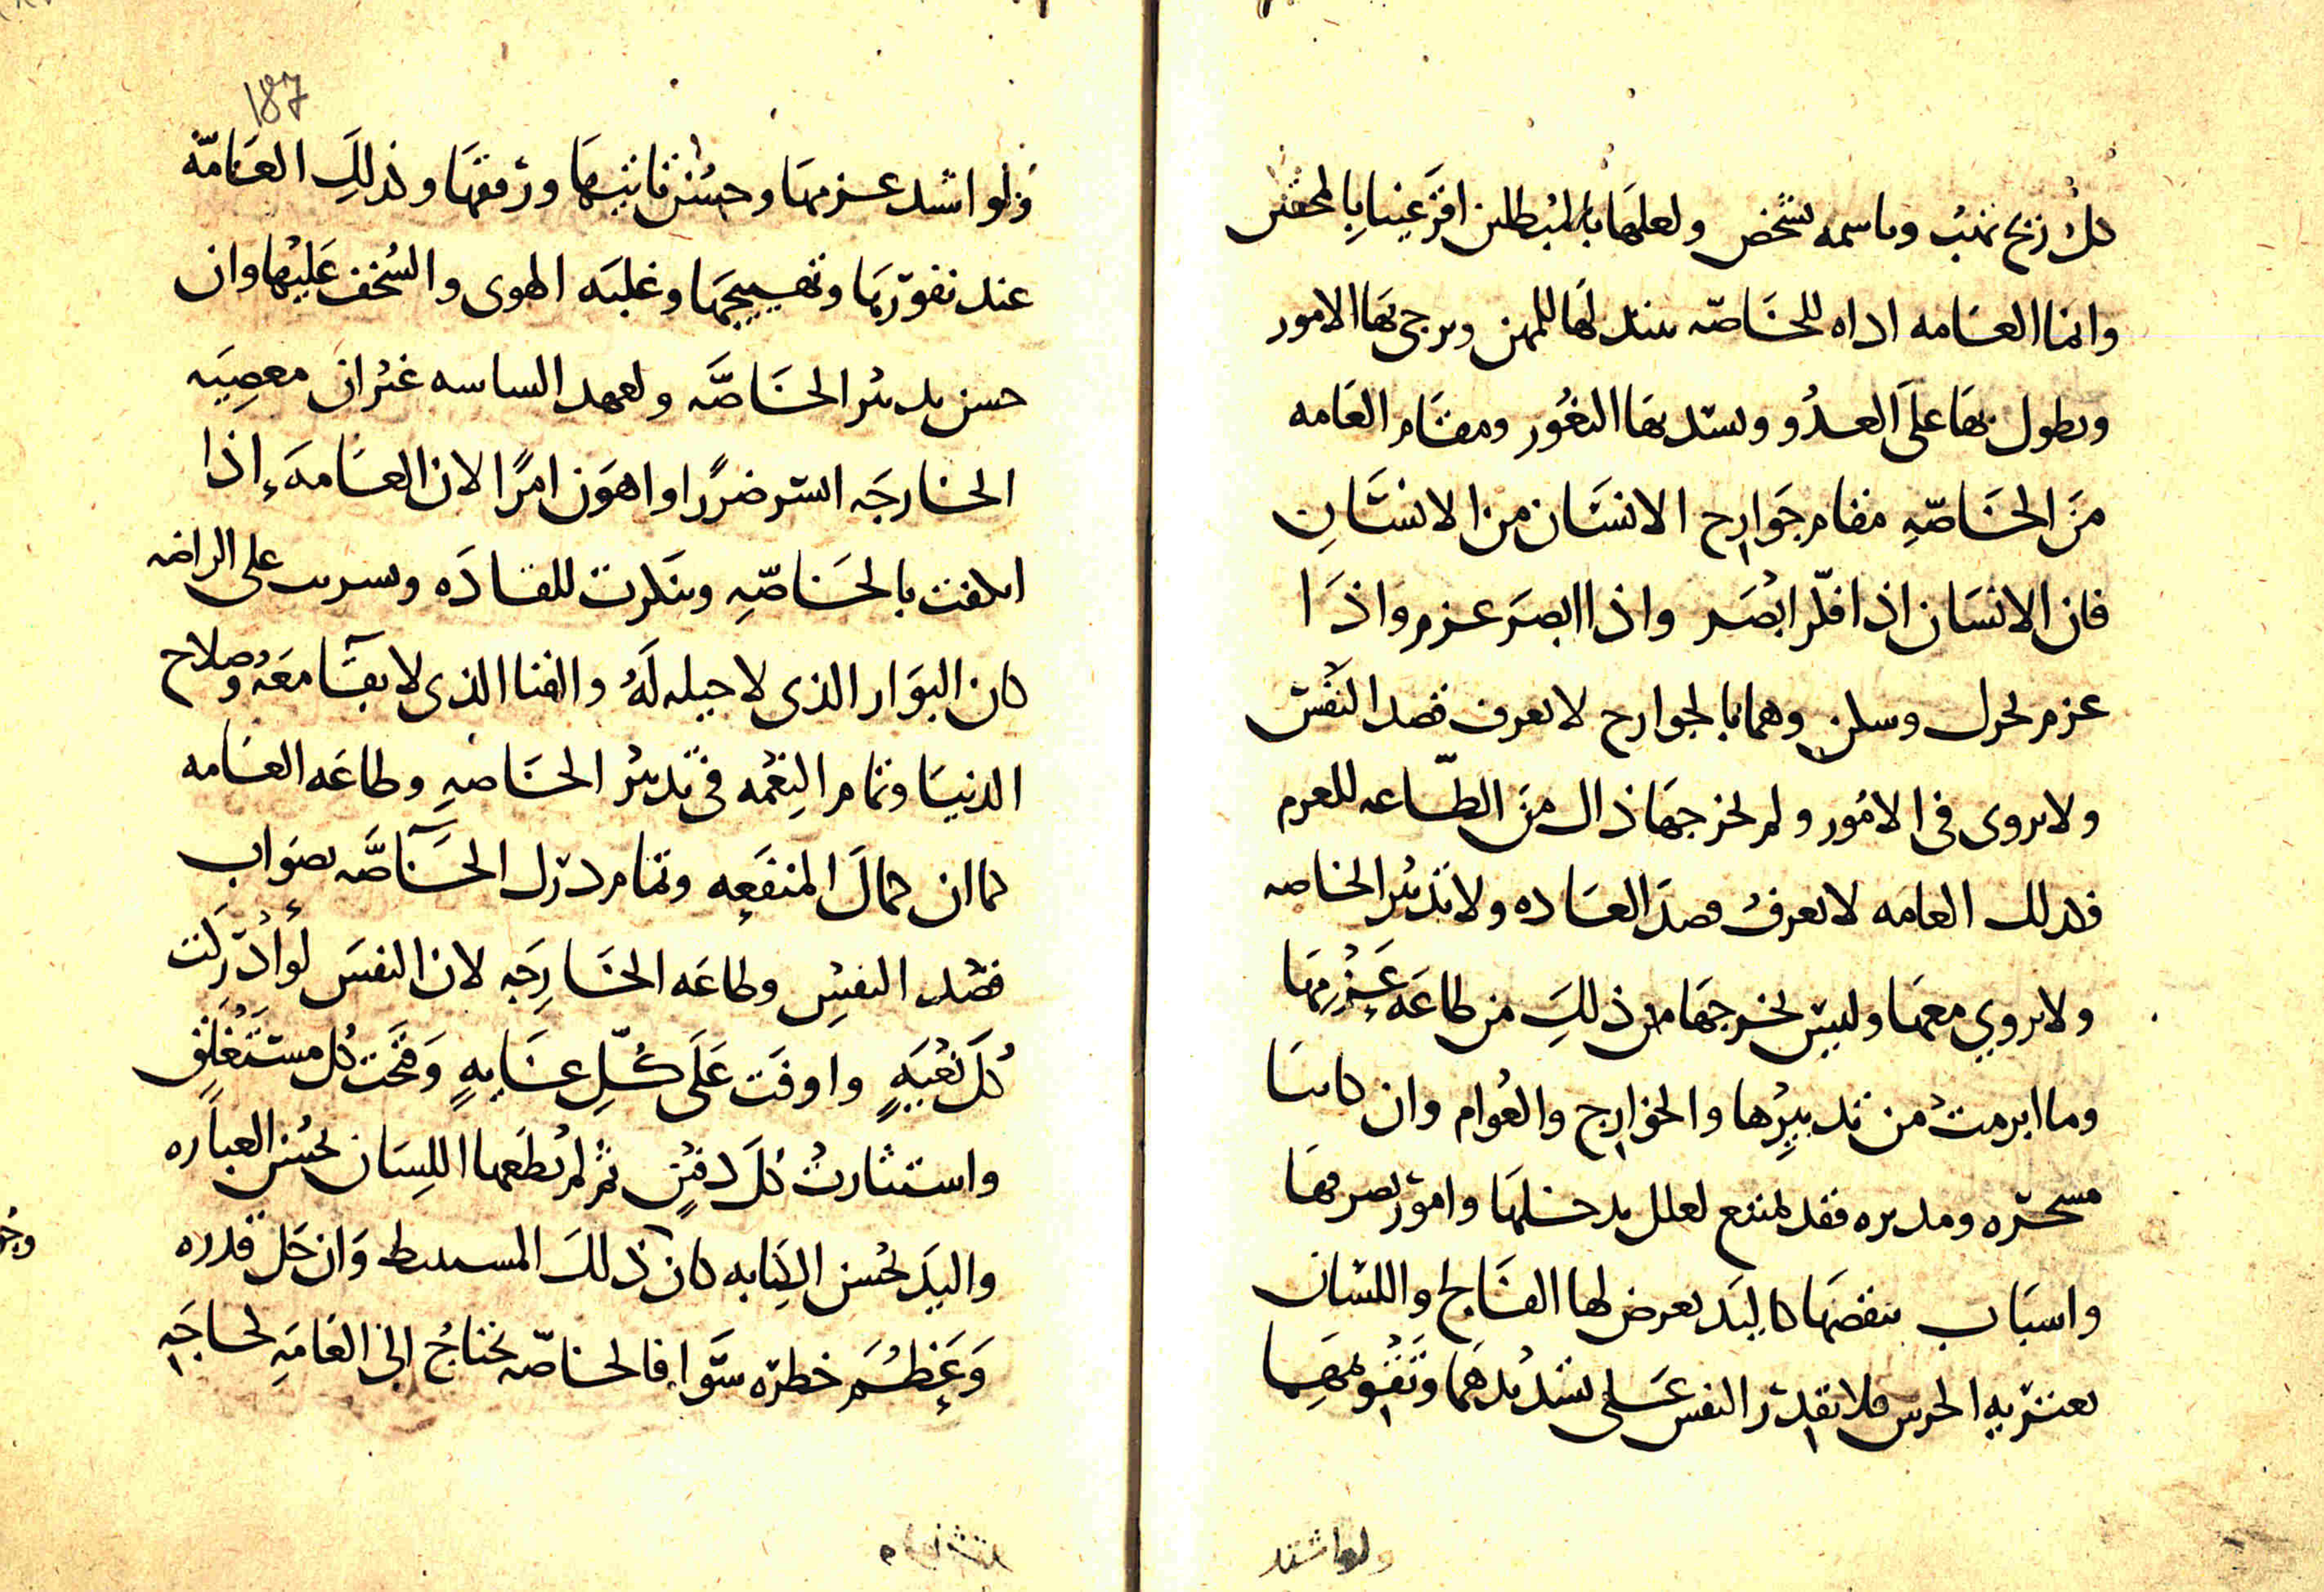 كل ريح تهب وناسمه تشخص ولعلها بالمبطلين اقرعينا بالمحقين
وانما العامه اداه للخاصه تبتذلها للمهن وترجى بها الامور
ويطول بها على العدو وتسد بها الثغور ومقام العامه
من الخاصه مقام جوارح الانسان من الانسان
فان الانسان اذا فكر ابصر واذا ابصر عزم واذا
عزم تحرك وسكن وهما بالجوارح لا تعرف قصد النفس
ولا تروى فى الامور ولم يخرجها ذاك من الطاعه للعزم
فكذلك العامه لا تعرف قصد القاده ولا تدبير الخاصه
ولا تروي معها وليس يخرجها من ذلك من طاعه عزمها
وما ابرمت من تدبيرها والجوارح والعوام وان كانتا
مسخره ومدبره فقد تمتنع لعلل تدخلها وامور تصرفها
واسباب تنقضها كاليد يعرض لها الفالج واللسان
يعتريه الخرس فلا تقدر النفس على تسديدهما وتقويمهما
ولو اشتد
187
ولو اشتد عزمها وحسن تاتيها ورفقها وكذلك العامه
عند نفورها وتهييجها وغلبه الهوى والسخف عليها وان
حسن تدبير الخاصه وتعهد الساسه غير ان معصيه
الجارحه ايسر ضررا واهون امرا لان العامه اذا
انكفت بالخاصه وتنكرت للقاده وتسرت على الراضه
كان البوار الذى لا حيله له والفنا الذى لا بقا معه وصلاح
الدنيا وتمام النعمه فى تدبير الخاصه وطاعه العامه
كما ان كمال المنفعه وتمام درك الحاصه بصواب
قصد النفس وطاعه الجارحه لان النفس لو ادركت
كل بغيه واوفت على كل غايه وفتحت كل مستغلق
واستثارت كل دفين ثم لم يطعها اللسان بحسن العباره
واليد بحسن الكتابه كان ذلك المستنبط وان جل قدره
وعظم خطره سوا فالخاصه تحتاج الى العامه لحاجه